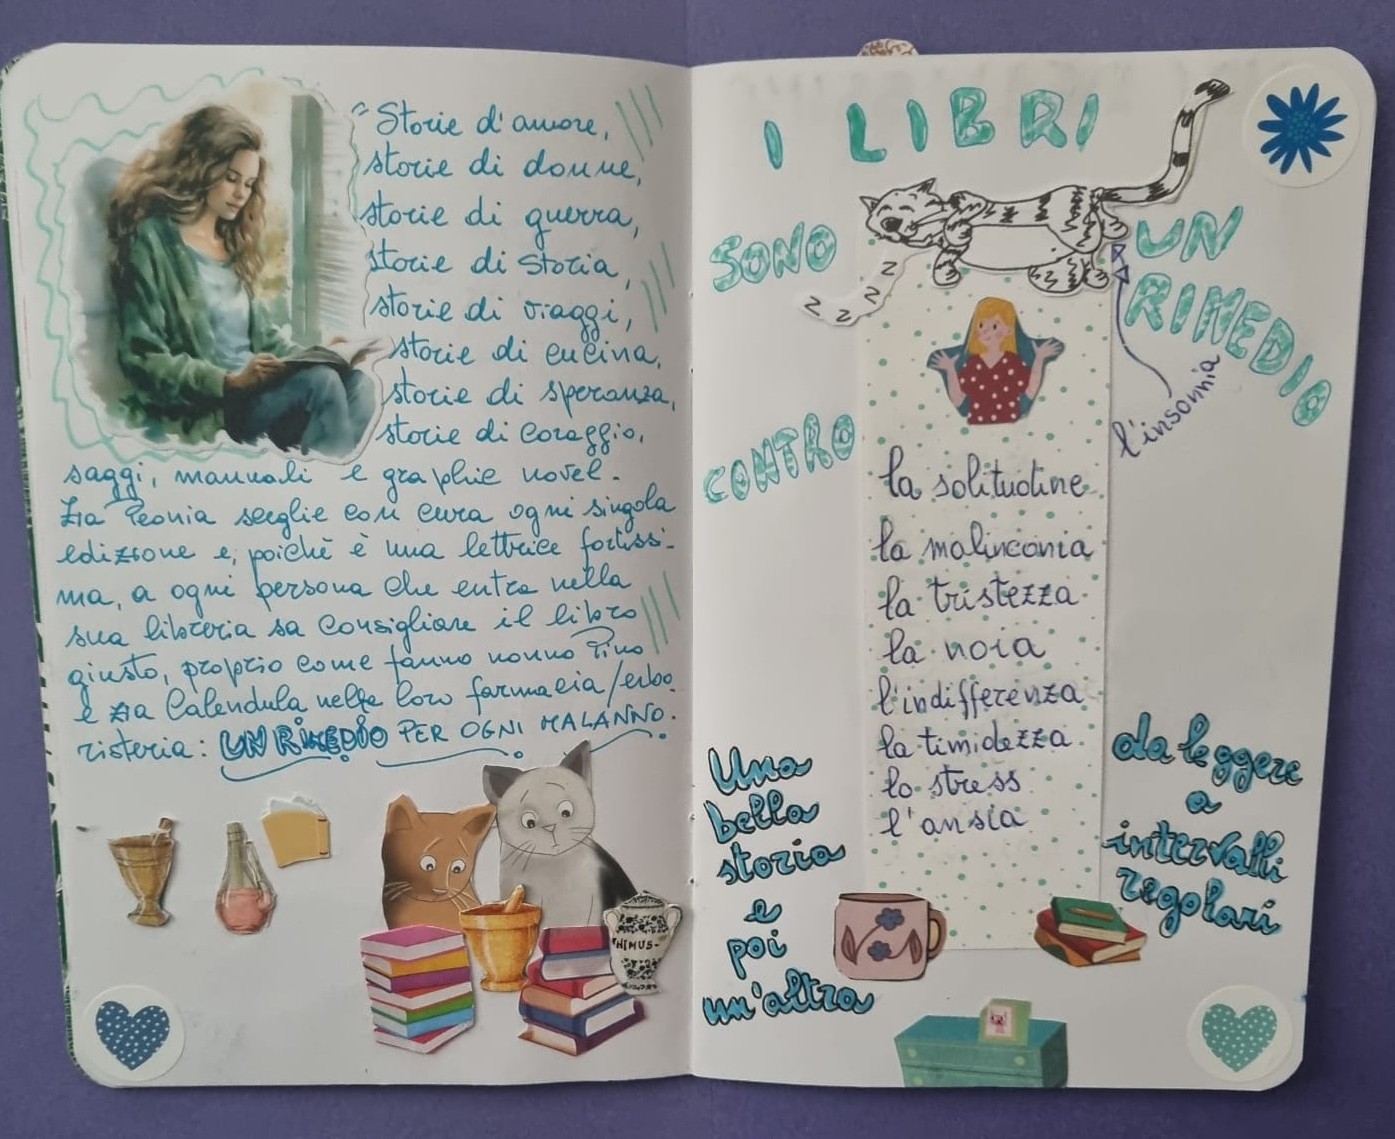 "Storie d'amore,
storie di donne,
storie di guerra,
storie di storia,
storie di viaggi,
storie di cucina,
storie di speranza,
storie di coraggio,
saggi, manuali e graphic novel.
Zia Peonia sceglie con cura ogni singola
edizione e, poiché è una lettrice fortissi-
ma, a ogni persona che entra nella
sua libreria sa consigliare il libro
giusto, proprio come fanno nonno Pino
e zia Calendula nella loro farmacia/erbo
risteria: UN RIMEDIO PER OGNI MALANNO.
HIMUS
I LIBRI
SONO
UN
RIMEDIO
z
z
z
z
CONTRO
l'insonnia
la solitudine
la malinconia
la tristezza
la noia
l'indifferenza
la timidezza
lo stress
l'ansia
Una
bella
storia
e
poi
un'altra
da leggere
a
intervalli
regolari